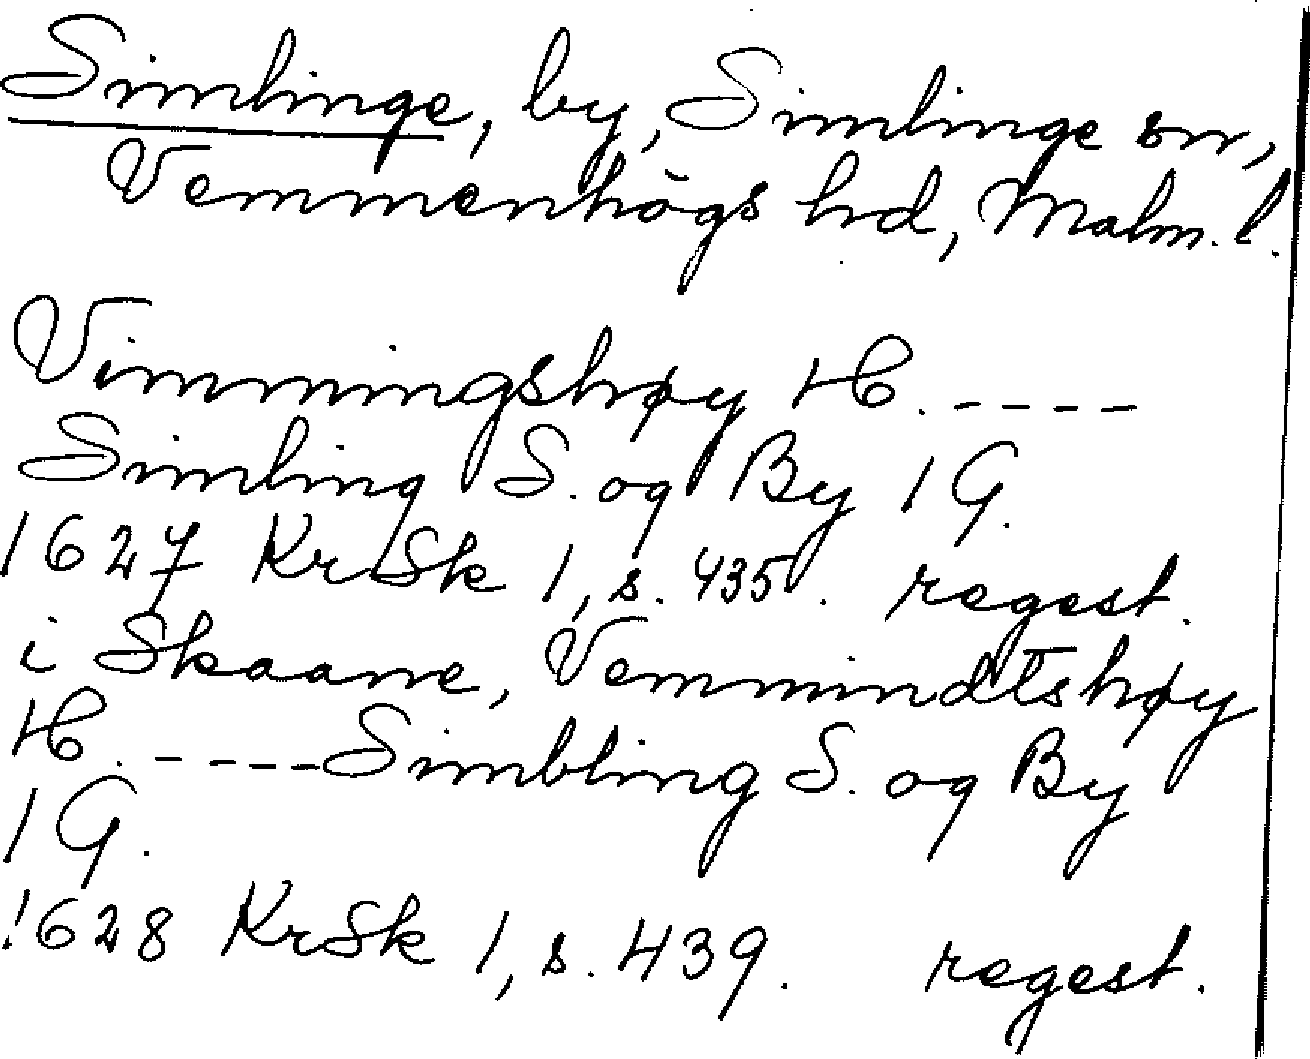 Simlinge, by, Simlinge sn,
Vemmenhögs hd, Malm. l.
Vimmingshøy H. ----
Simling S. og By 1 G.
1627 KrSk 1, s. 435. regest.
i Skaane, Vemmindtshøy
H. ---- Simbling S. og By
1 G.
1628 KrSk 1, s. 439. regest.